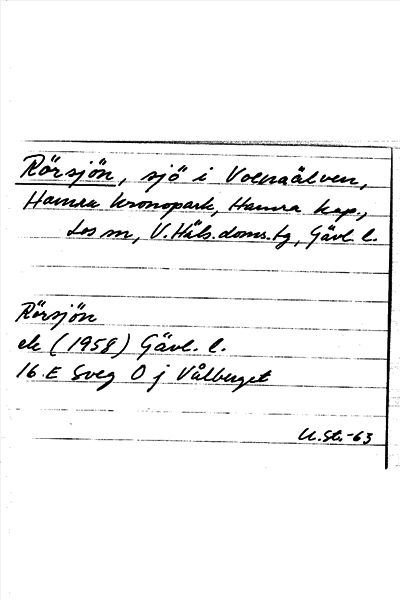 Rörsjön, sjö i Volnaälven,
Hamra kronopark, Hamra kap.,
Los sn, V. Häls. doms. tg, Gävl. l.
Rörsjön
ek (1958) Gävl. l.
16 E Sveg 0 j Vålberget
U.St.-63